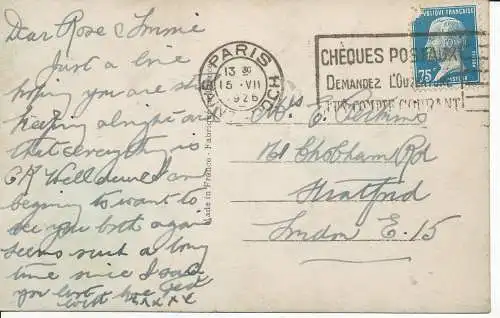 Dear Rose & Immie
Just a line
hoping you are still
keeping alright and
that everything is
OK Well dear I am
begining to want to
see you both again
seems such a long
time since I said
you
with xxxxx
Made in France - Fabriqué
PARIS
13 30
15 · VII
1926
CHÈQUES POSTAUX
DEMANDEZ L'OUVERTURE
D'UN COMPTE COURANT
RÉPUBLIQUE FRANÇAISE
75
POSTES
Mrs E. Perkins
161 Chobham Rd
Stratford
London E.15